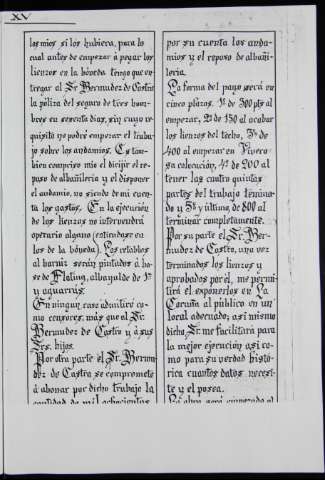 XV
los míos si los hubiera, para lo
cual antes de empezar á pegar los
lienzos en la bóveda tengo que en-
tregar al Sr. Bermudez de Castro
la póliza del seguro de tres hom-
bres en sesenta dias, sin cuyo re-
quisito no podré empezar el traba-
jo sobre los andamios. Es tam-
bien compriso mio el dirijir el repo-
so de albañilería y el disponer
el andamio, no siendo de mi cuen-
ta los gastos. En la ejecución
de los lienzos no intervendrá
operario alguno (entiendase en
los de la bóveda). Los retablos
al barniz serán pintados á ba-
se de Flating, albayalde de 1ª
y aguarrás.
En ningun caso admitiré co-
mo censores, más que al Sr.
Bermudez de Castro y á sus
Srs. hijos.
Por otra parte el Sr. Bermu-
dez de Castro se compromete
á abonar por dicho trabajo la
cantidad de mil ochocientas
por su cuenta los anda-
mios y el reposo de albañi-
lería.
La forma del pago será en
cinco plazos. 1º de 300 pts al
empezar, 2º de 150 al acabar
los lienzos del techo, 3º de
400 al empezar en Vivero
su colocación, 4º de 200 al
tener las cuatro quintas
partes del trabajo termina-
do y 5º y última, de 800 al
terminar completamente.
Por su parte el Sr. Ber-
mudez de Castro, una vez
terminados los lienzos y
aprobados por él, me permi-
tirá el exponerlos en La
Coruña al público en un
local adecuado; asi mismo
dicho Sr. me facilitará para
la mejor ejecución asi co-
mo para su verdad histó-
rica cuantos datos necesi-
te y el posea.
La obra será empezada al